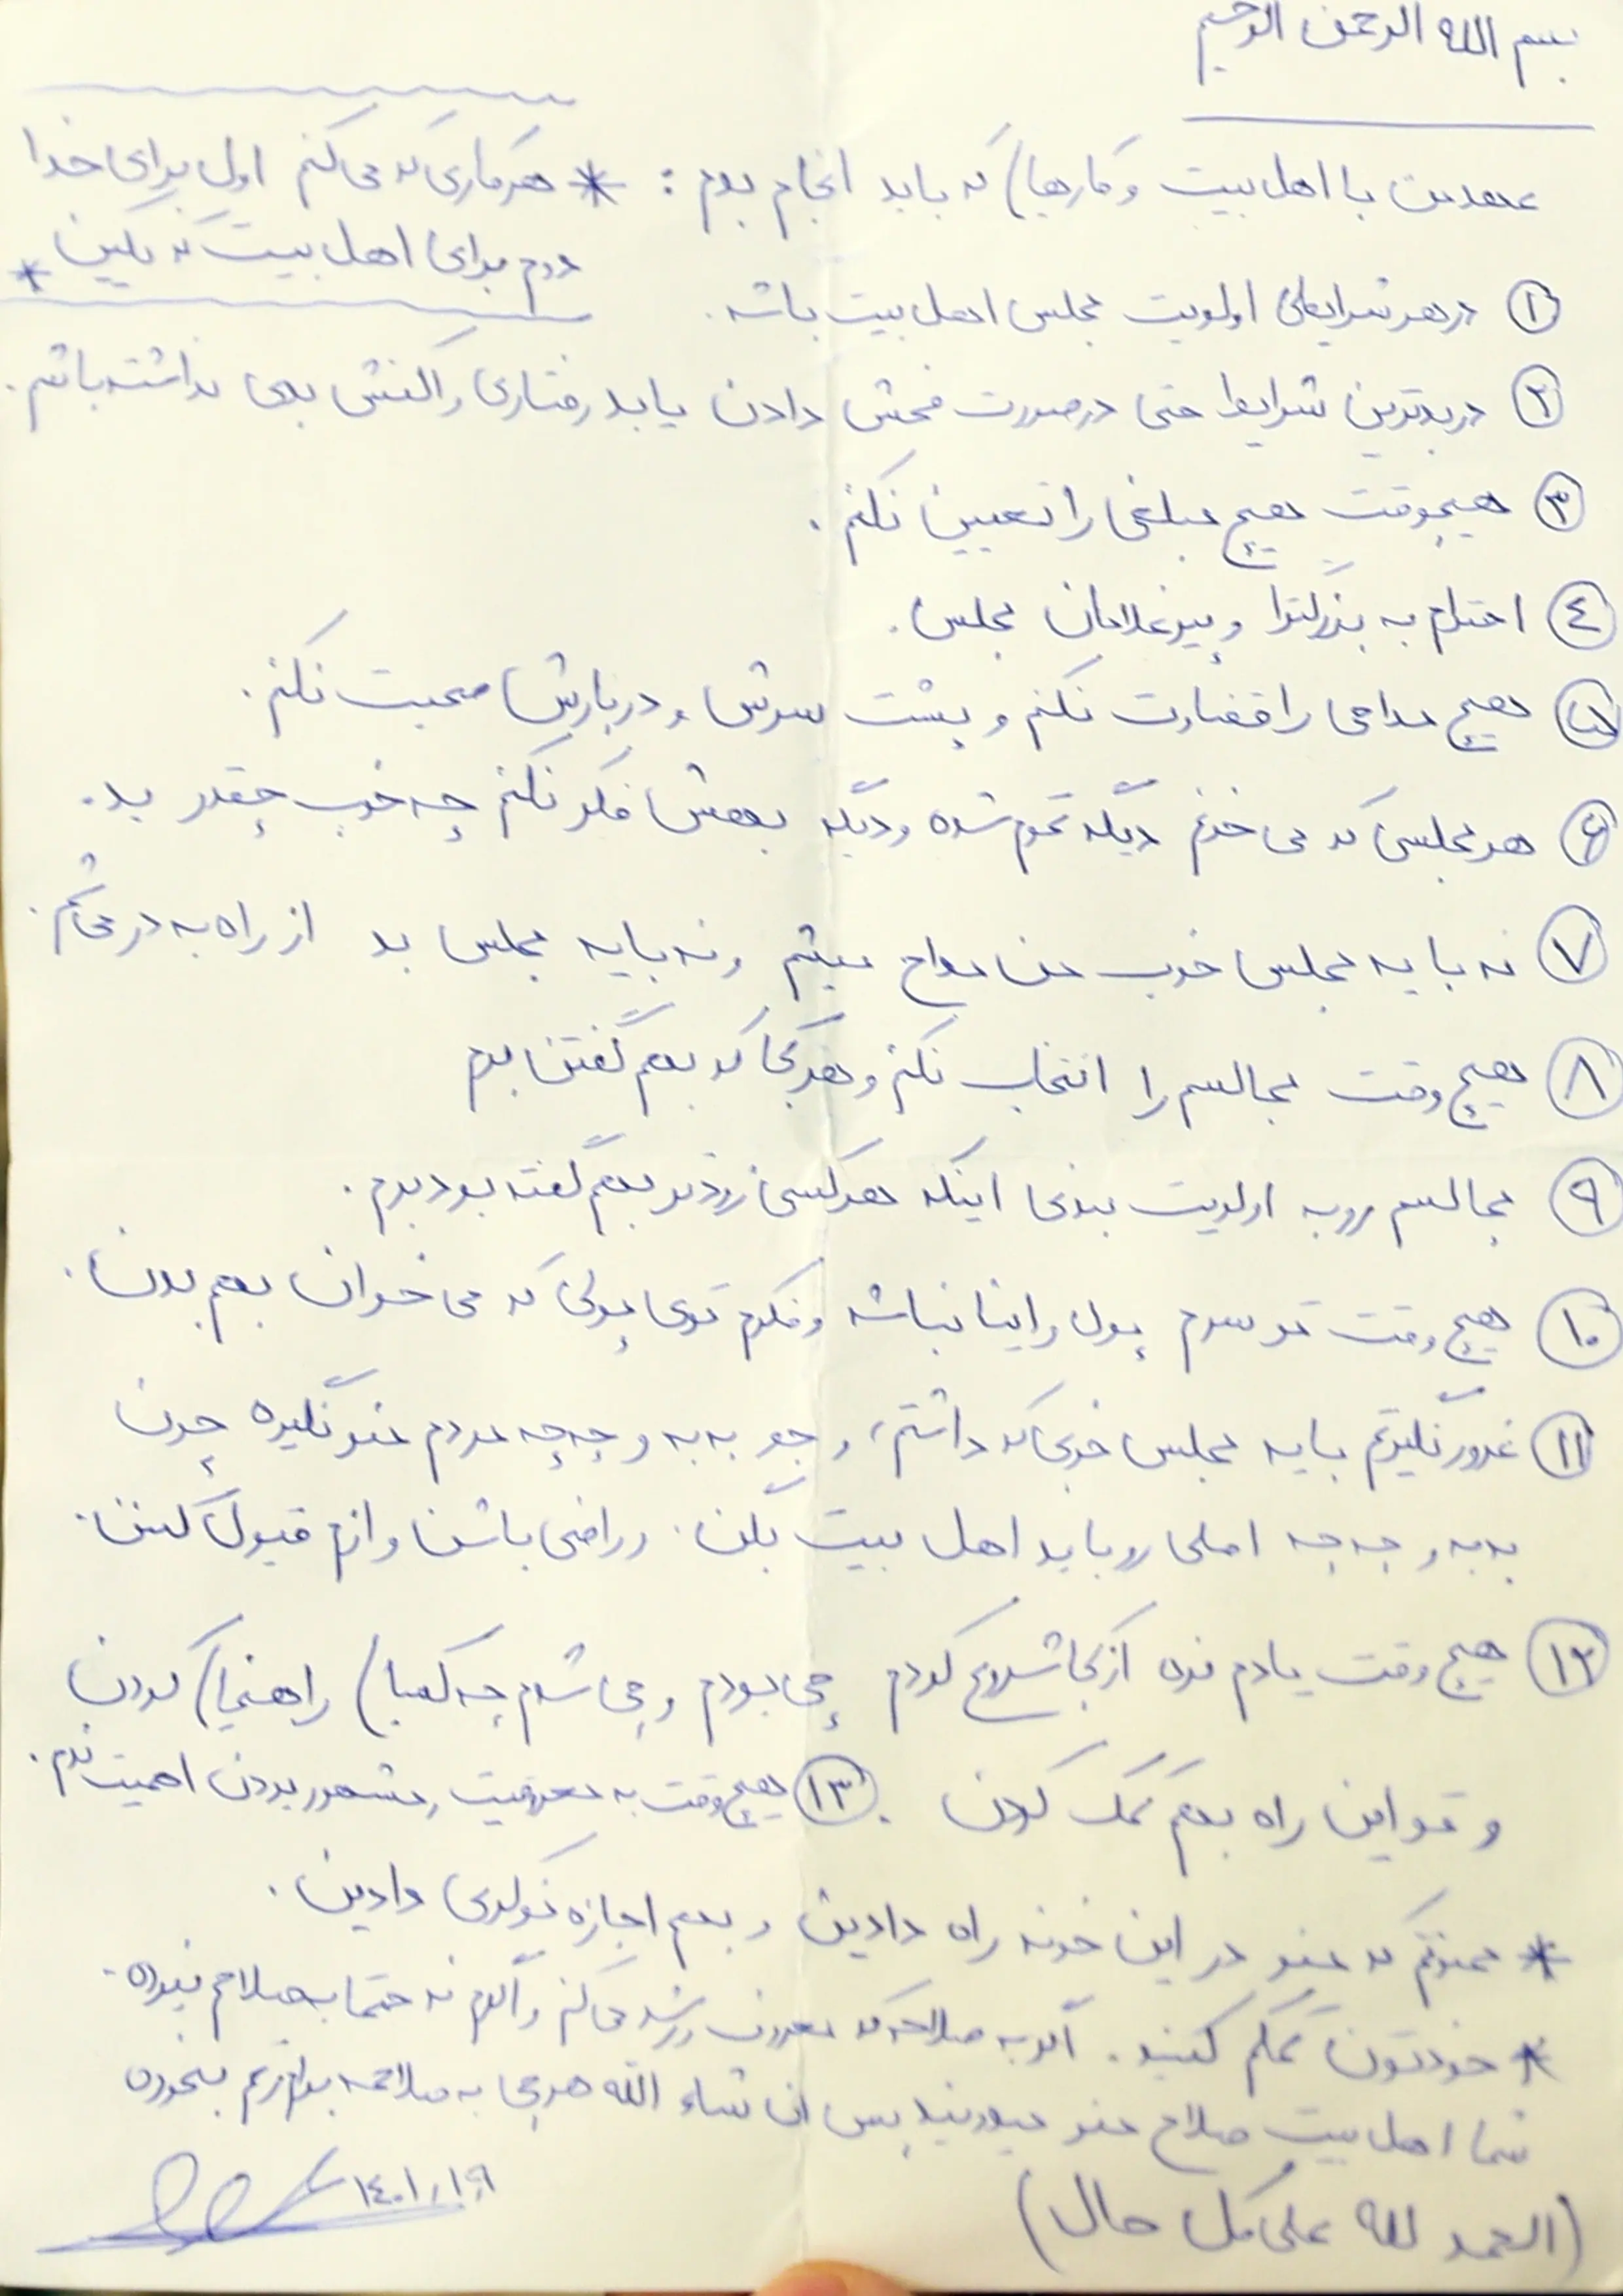 بسم الله الرحمن الرحیم
عهد من با اهل بیت و کارهایی که باید انجام بدم : * هرکاری که می کنم اول برای خدا
دوم برای اهل بیت که بگین *
① در هر شرایطی اولویت مجلس اهل بیت باشه .
② در بدترین شرایط حتی در صورت فحش دادن یا بد رفتاری واکنش بدی نداشته باشم .
③ هیچوقت هیچ مبلغی را تعیین نکنم .
④ احترام به بزرگترا و پیرغلامان مجلس .
⑤ هیچ مداحی را قضاوت نکنم و پشت سرش و دربارش صحبت نکنم .
⑥ هر مجلسی که می خونم دیگه تموم شده و دیگه بهش فکر نکنم چه خوب چقدر بد .
⑦ نه با یه مجلس خوب من مداح میشم و نه با یه مجلس بد از راه به در می شم .
⑧ هیچ وقت مجالسم را انتخاب نکنم و هرکجا که بهم گفتن برم
⑨ مجالسم رو به اولویت بندی اینکه هرکسی زودتر بهم گفته بود برم .
⑩ هیچ وقت تو سرم پول و اینا نباشه و فکرم توی پولی که می خوان بهم بدن .
⑪ غرور نگیرتم با یه مجلس خوبی که داشتم ، و جو به به و چه چه مردم منو نگیره چون
به به و چه چه اصلی رو باید اهل بیت بگن . و راضی باشن و ازم قبول کنن .
⑫ هیچ وقت یادم نره از کجا شروع کردم چی بودم و چی شدم چه کسایی راهنمایی کردن
و تو این راه بهم کمک کردن . ⑬ هیچوقت به معروفیت و مشهور بودن اهمیت ندم .
* ممنونم که منو در این خونه راه دادین و بهم اجازه نوکری دادین .
* خودتون کمکم کنید . اگر به صلاحه که معروف و رشد می کنم و اگرم نه حتما به صلاحم نبوده .
شما اهل بیت صلاح منو میدونید پس ان شاء الله هرچی به صلاحمه برام رقم بخوره
(الحمد لله علی کل حال)
۱۴۰۱٫۱٫۱۹